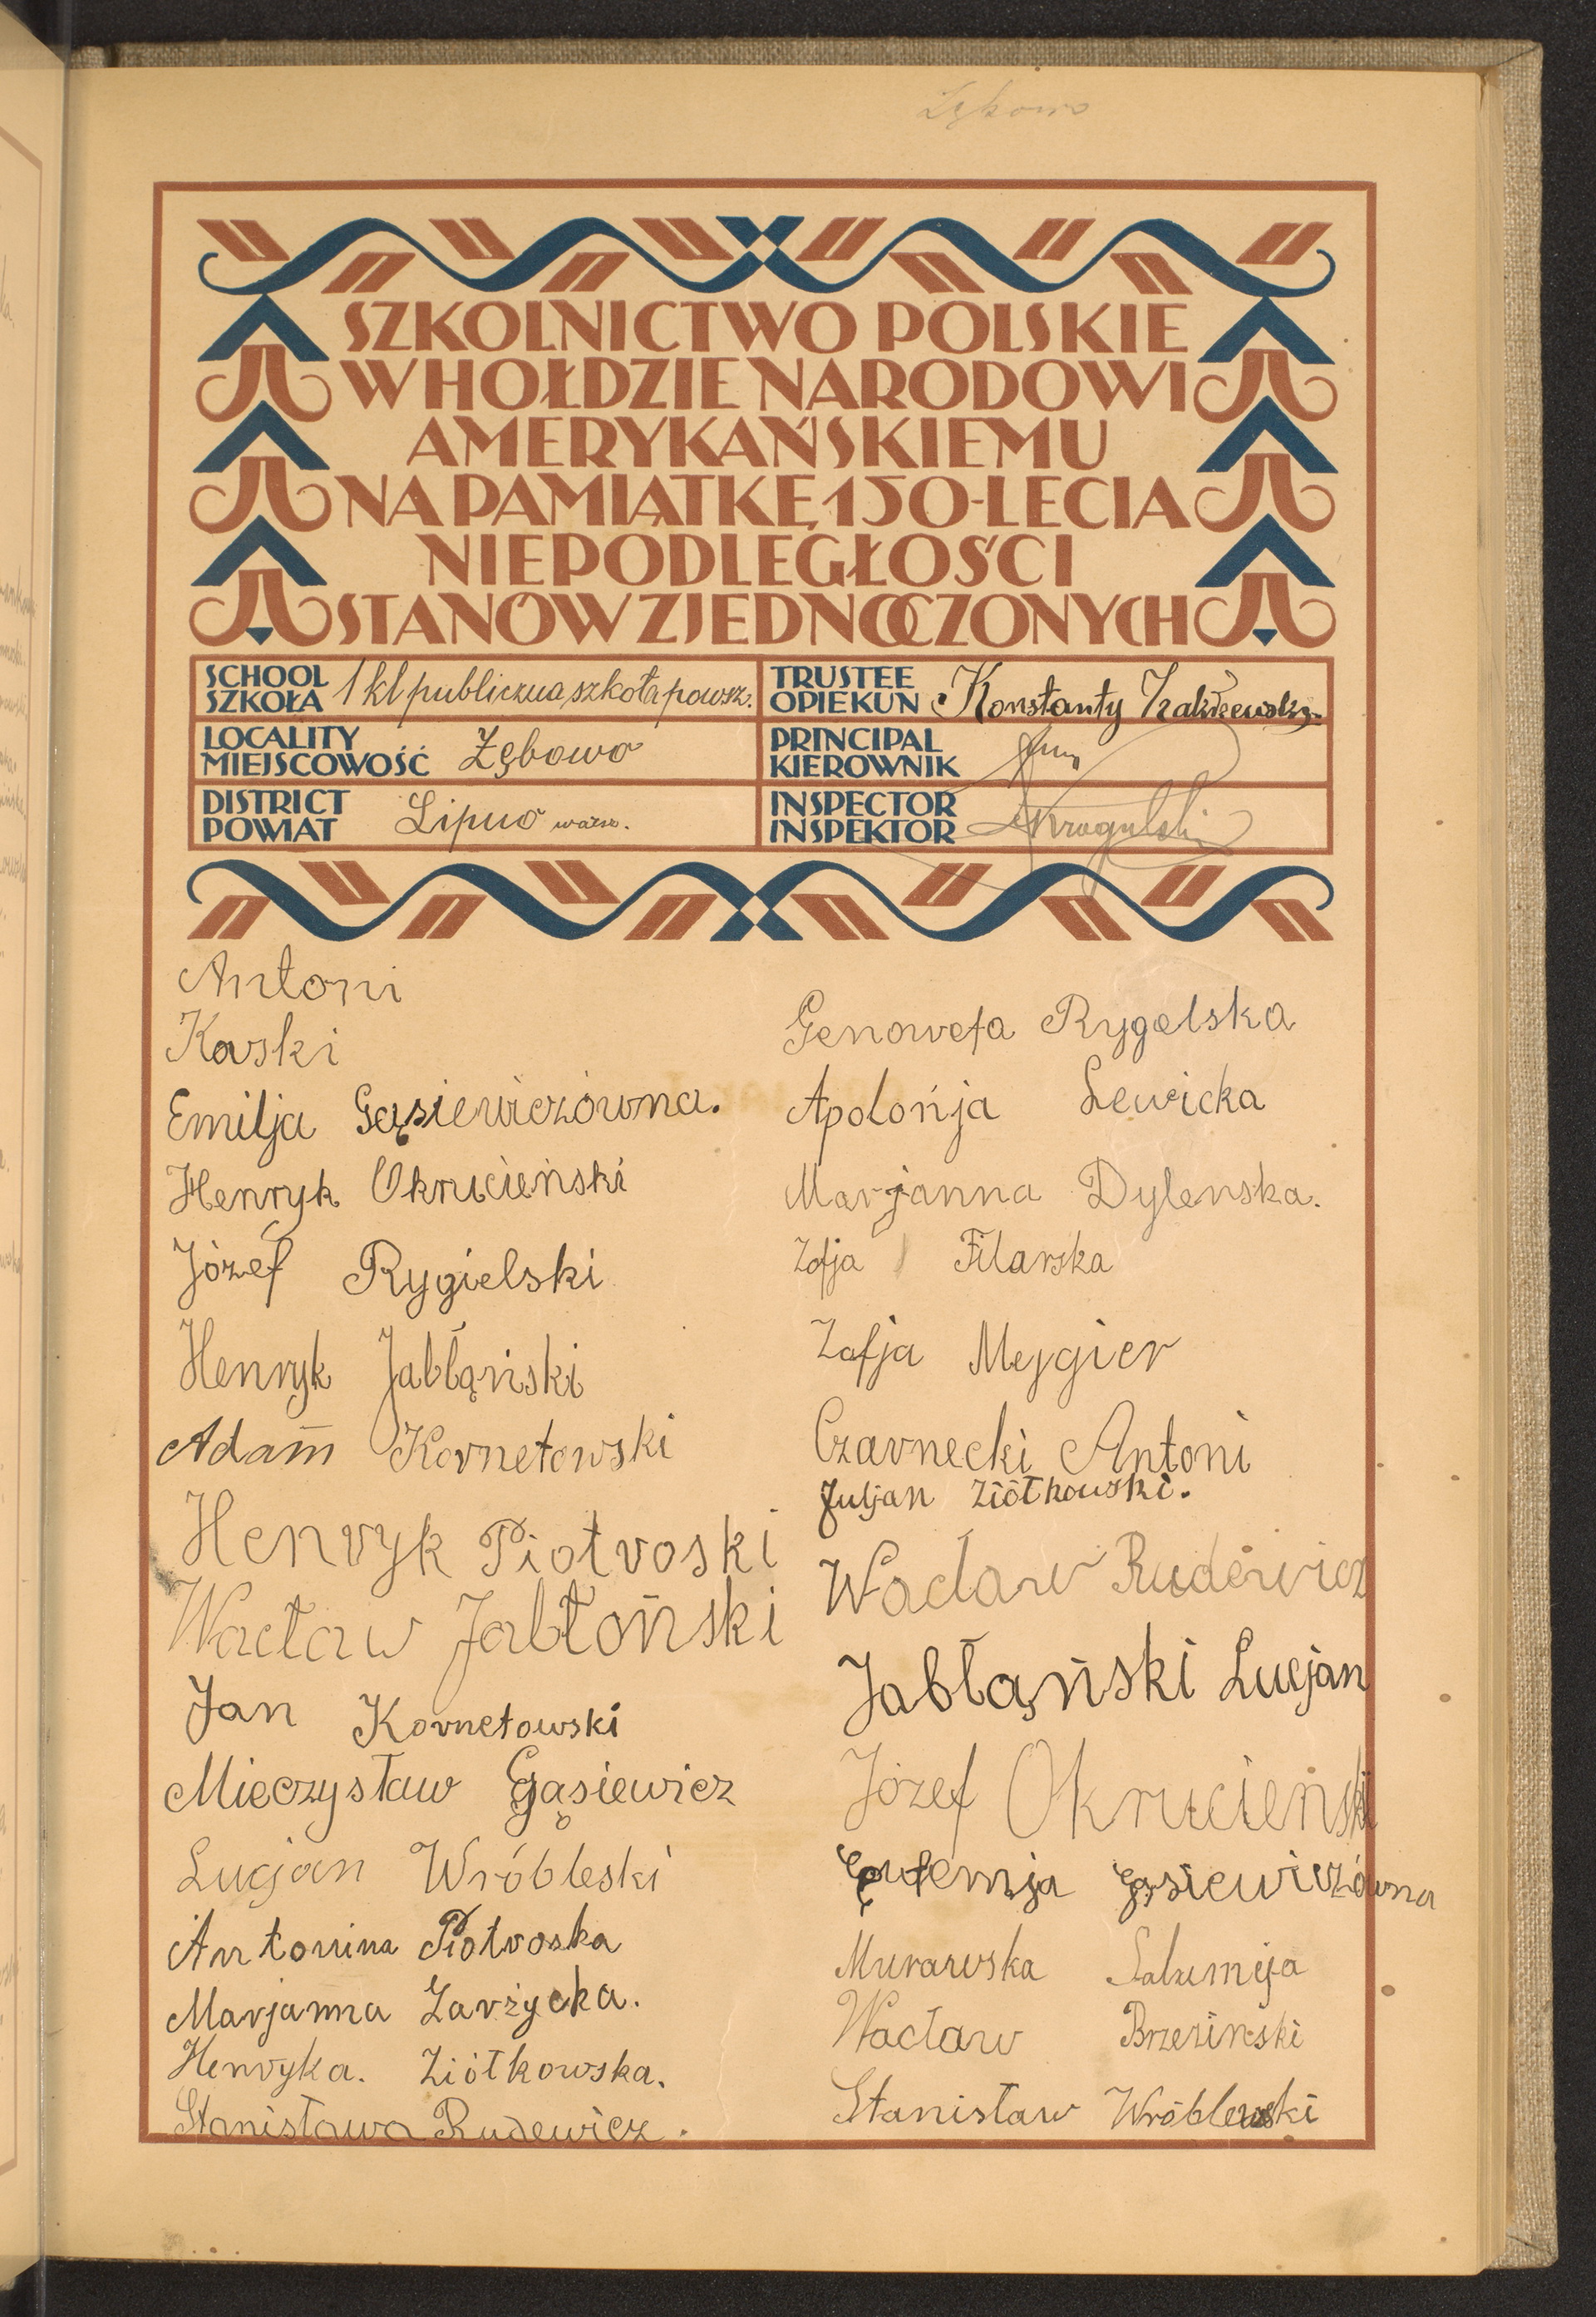 SZKOLNICTWO POLSKIE
W HOŁDZIE NARODOWI
AMERYKAŃSKIEMU
NA PAMIĄTKĘ 150-LECIA
NIEPODLEGŁOŚCI
STANÓW ZJEDNOCZONYCH
SCHOOL
SZKOŁA 1 kl publiczna szkoła powsz.
TRUSTEE
OPIEKUN Konstanty
LOCALITY
MIEJSCOWOŚĆ Zębowo
PRINCIPAL
KIEROWNIK
DISTRICT
POWIAT Lipno warsz.
INSPECTOR
INSPEKTOR
Antoni
Kaski
Emilja Gąsiewiczówna.
Henryk Okrucieński
Józef Rygielski
Henryk Jabłąński
Adam Kornetowski
Henryk Piotroski
Wacław Jabłoński
Jan Kornetowski
Mieczysław Gąsiewicz
Lucjan Wróbleski
Antonina Piotroska
Marjanna Zarzycka.
Henryka. Ziółkowska.
Stanisława Rudewicz.
Genowefa Rygelska
Apolońja Lewicka
Marjanna Dylenska.
Zofja Filarska
Zofja Mejgier
Czarnecki Antoni
Juljan Ziółkowski.
Wacław Rudewicz
Jabłąński Lucjan
Józef Okrucieński
Eufemja Gąsiewiczówna
Murawska Salumeja
Wacław Brzezinski
Stanisław Wróblewski